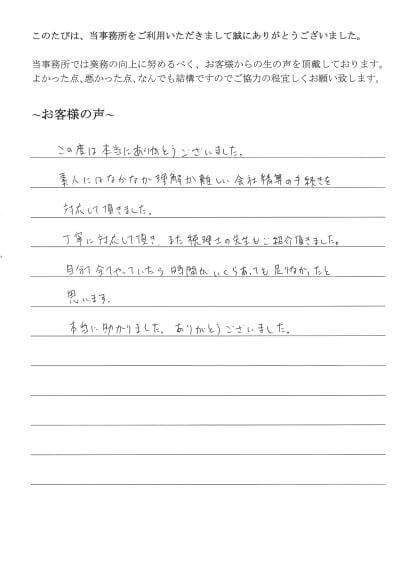 このたびは、当事務所をご利用いただきまして誠にありがとうございました。
当事務所では業務の向上に努めるべく、お客様からの生の声を頂戴しております。
よかった点、悪かった点、なんでも結構ですのでご協力の程宜しくお願い致します。
~お客様の声~
この度は本当にありがとうございました。
素人にはなかなか理解が難しい会社精算の手続きを
対応して頂きました。
丁寧に対応して頂き、また税理士の先生もご紹介頂きました。
自分で全てやっていたら時間がいくらあっても足りなかったと
思います。
本当に助かりました。ありがとうございました。